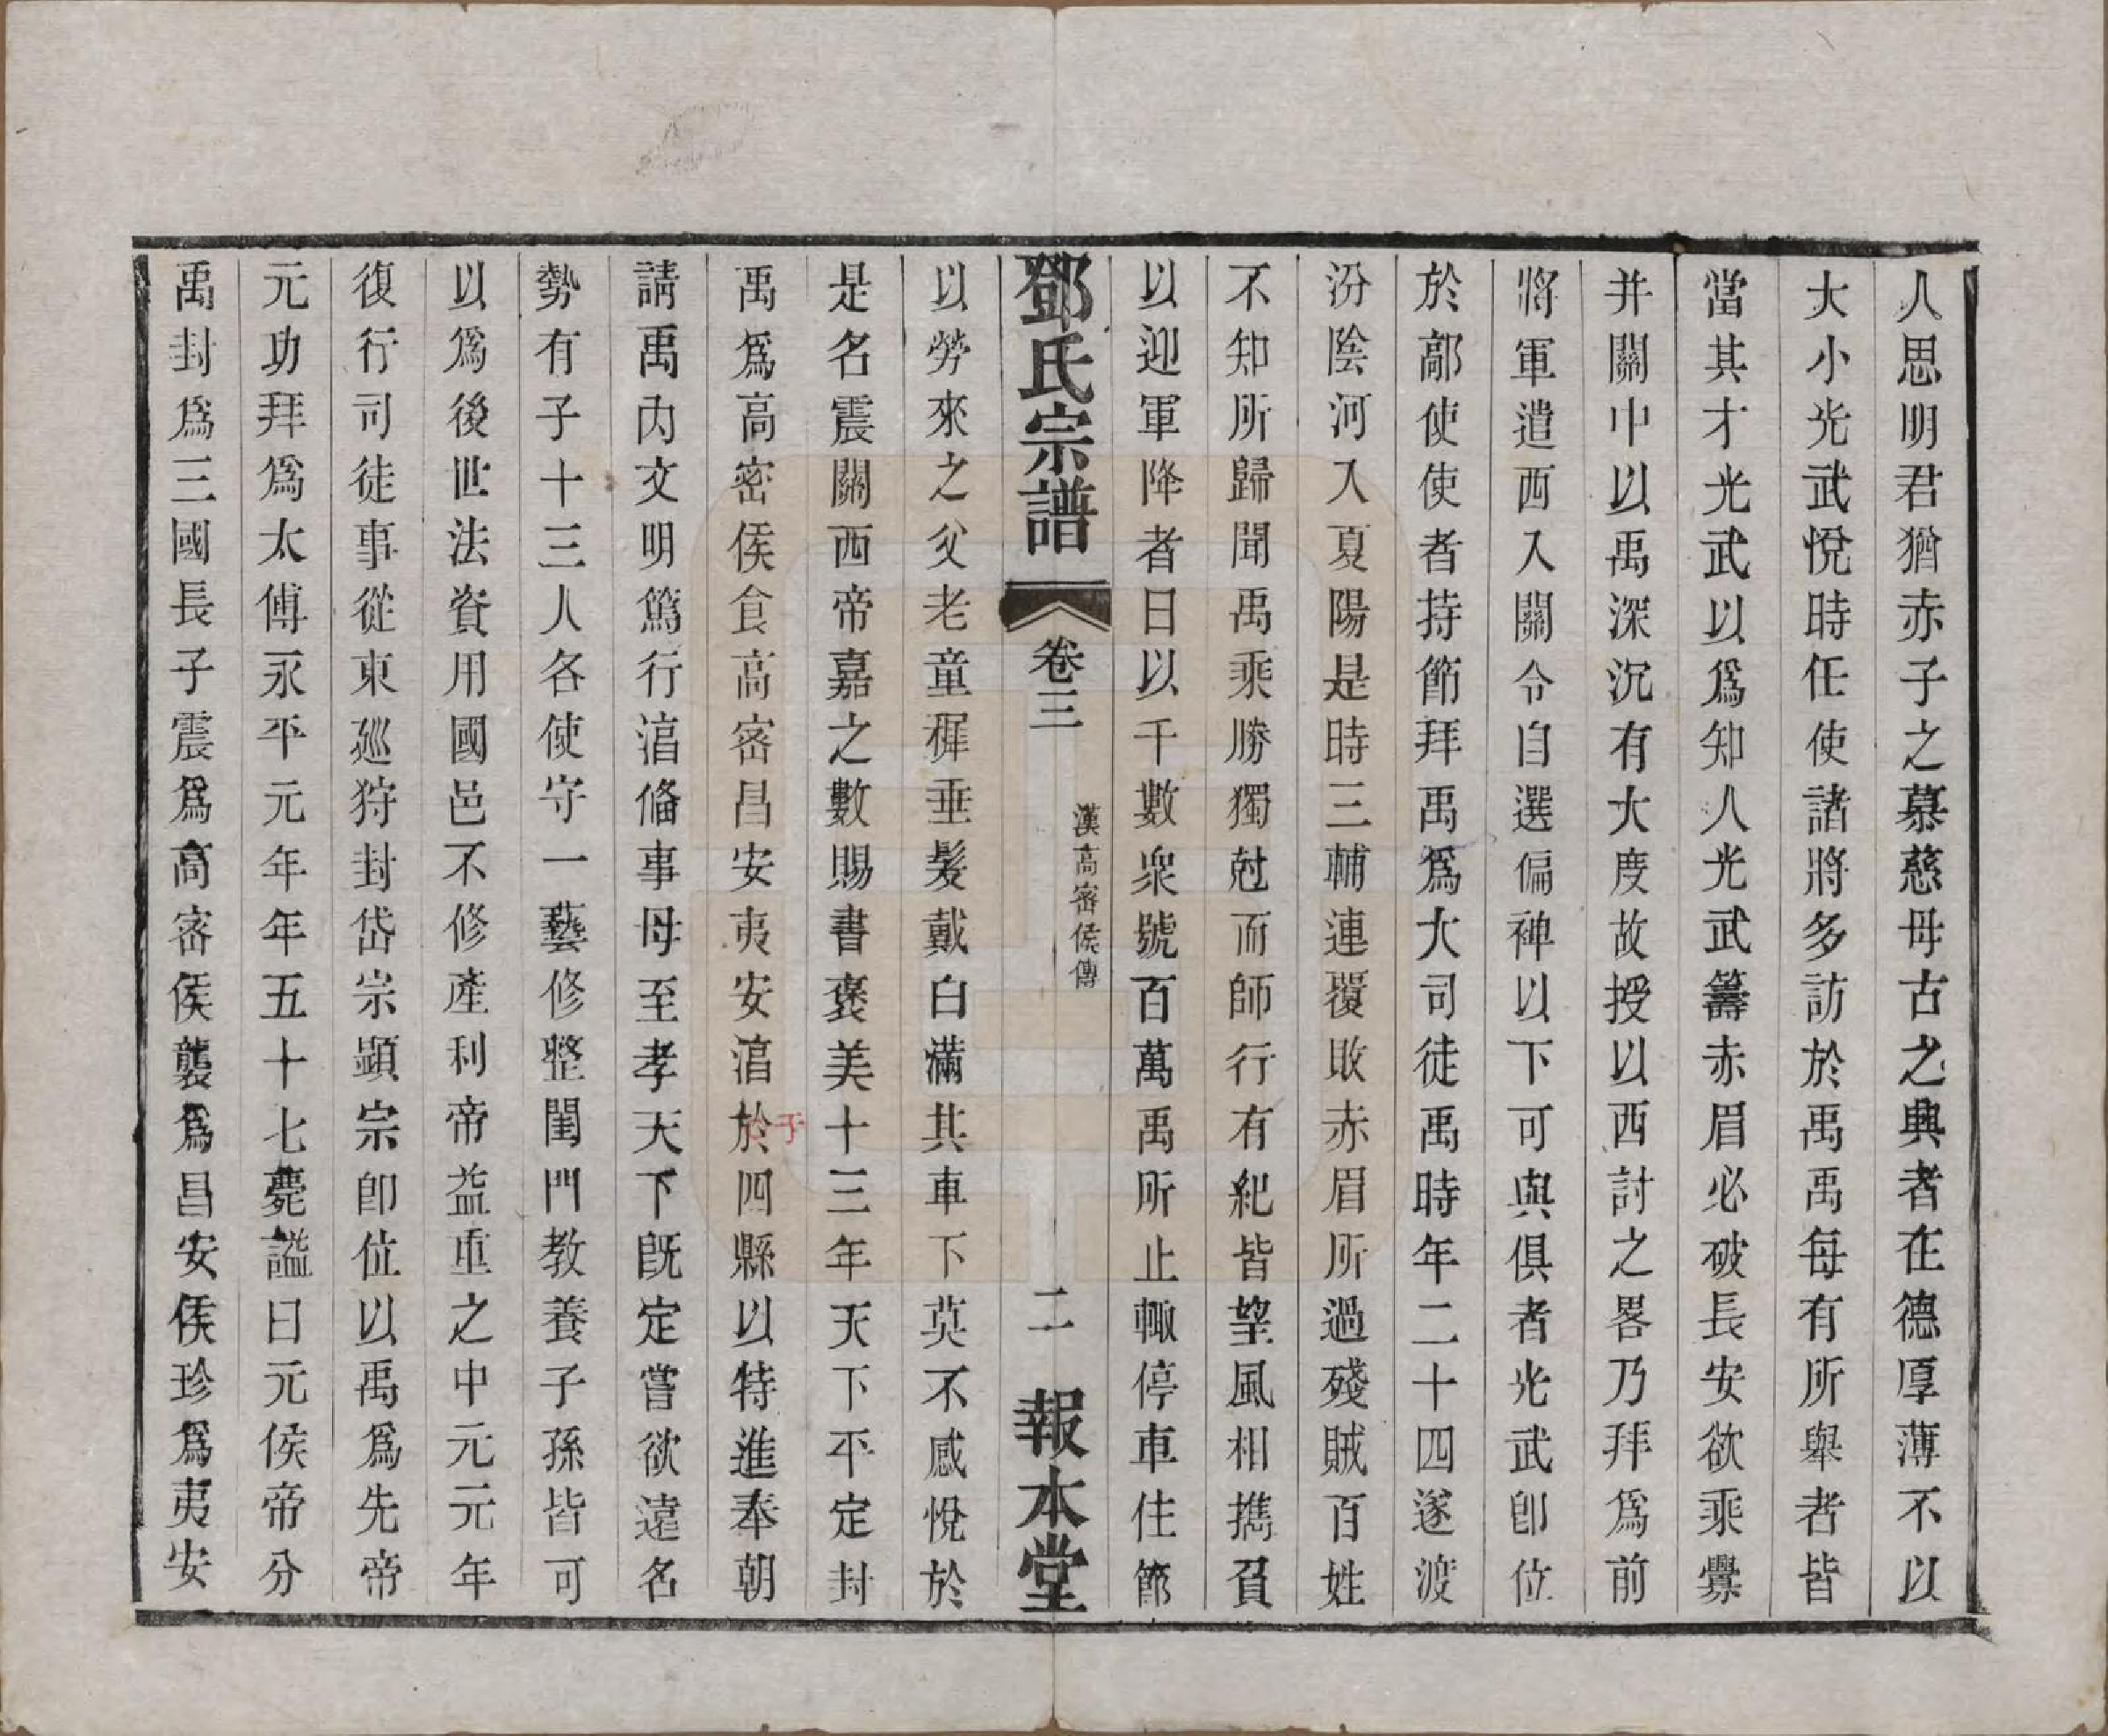 人思明君猶赤子之慕慈母古之興者在德厚薄不以
大小光武悅時任使諸將多訪於禹禹每有所舉者皆
當其才光武以爲知人光武籌赤眉必破長安欲乘釁
并關中以禹深沉有大度故授以西討之畧乃拜爲前
將軍遣西入關令自選偏裨以下可與俱者光武卽位
於鄗使使者持節拜禹爲大司徒禹時年二十四遂渡
汾陰河入夏陽是時三輔連覆敗赤眉所過殘賊百姓
不知所歸聞禹乘勝獨尅而師行有紀皆望風相擕負
以迎軍降者日以千數衆號百萬禹所止輙停車住節
鄧氏宗譜 卷三 漢高密侯傳 二 報本堂
以勞來之父老童穉垂髮戴白滿其車下莫不感悅於
是名震關西帝嘉之數賜書褒美十三年天下平定封
禹爲高密侯食高密昌安夷安淯於四縣以特進奉朝
于
請禹內文明篤行淯偹事母至孝天下旣定嘗欲遠名
勢有子十三人各使守一藝修整閨門教養子孫皆可
以爲後世法資用國邑不修產利帝益重之中元元年
復行司徒事從東廵狩封岱宗顯宗卽位以禹爲先帝
元功拜爲太傅永平元年年五十七薨謚曰元侯帝分
禹封爲三國長子震爲高密侯襲爲昌安侯珍爲夷安